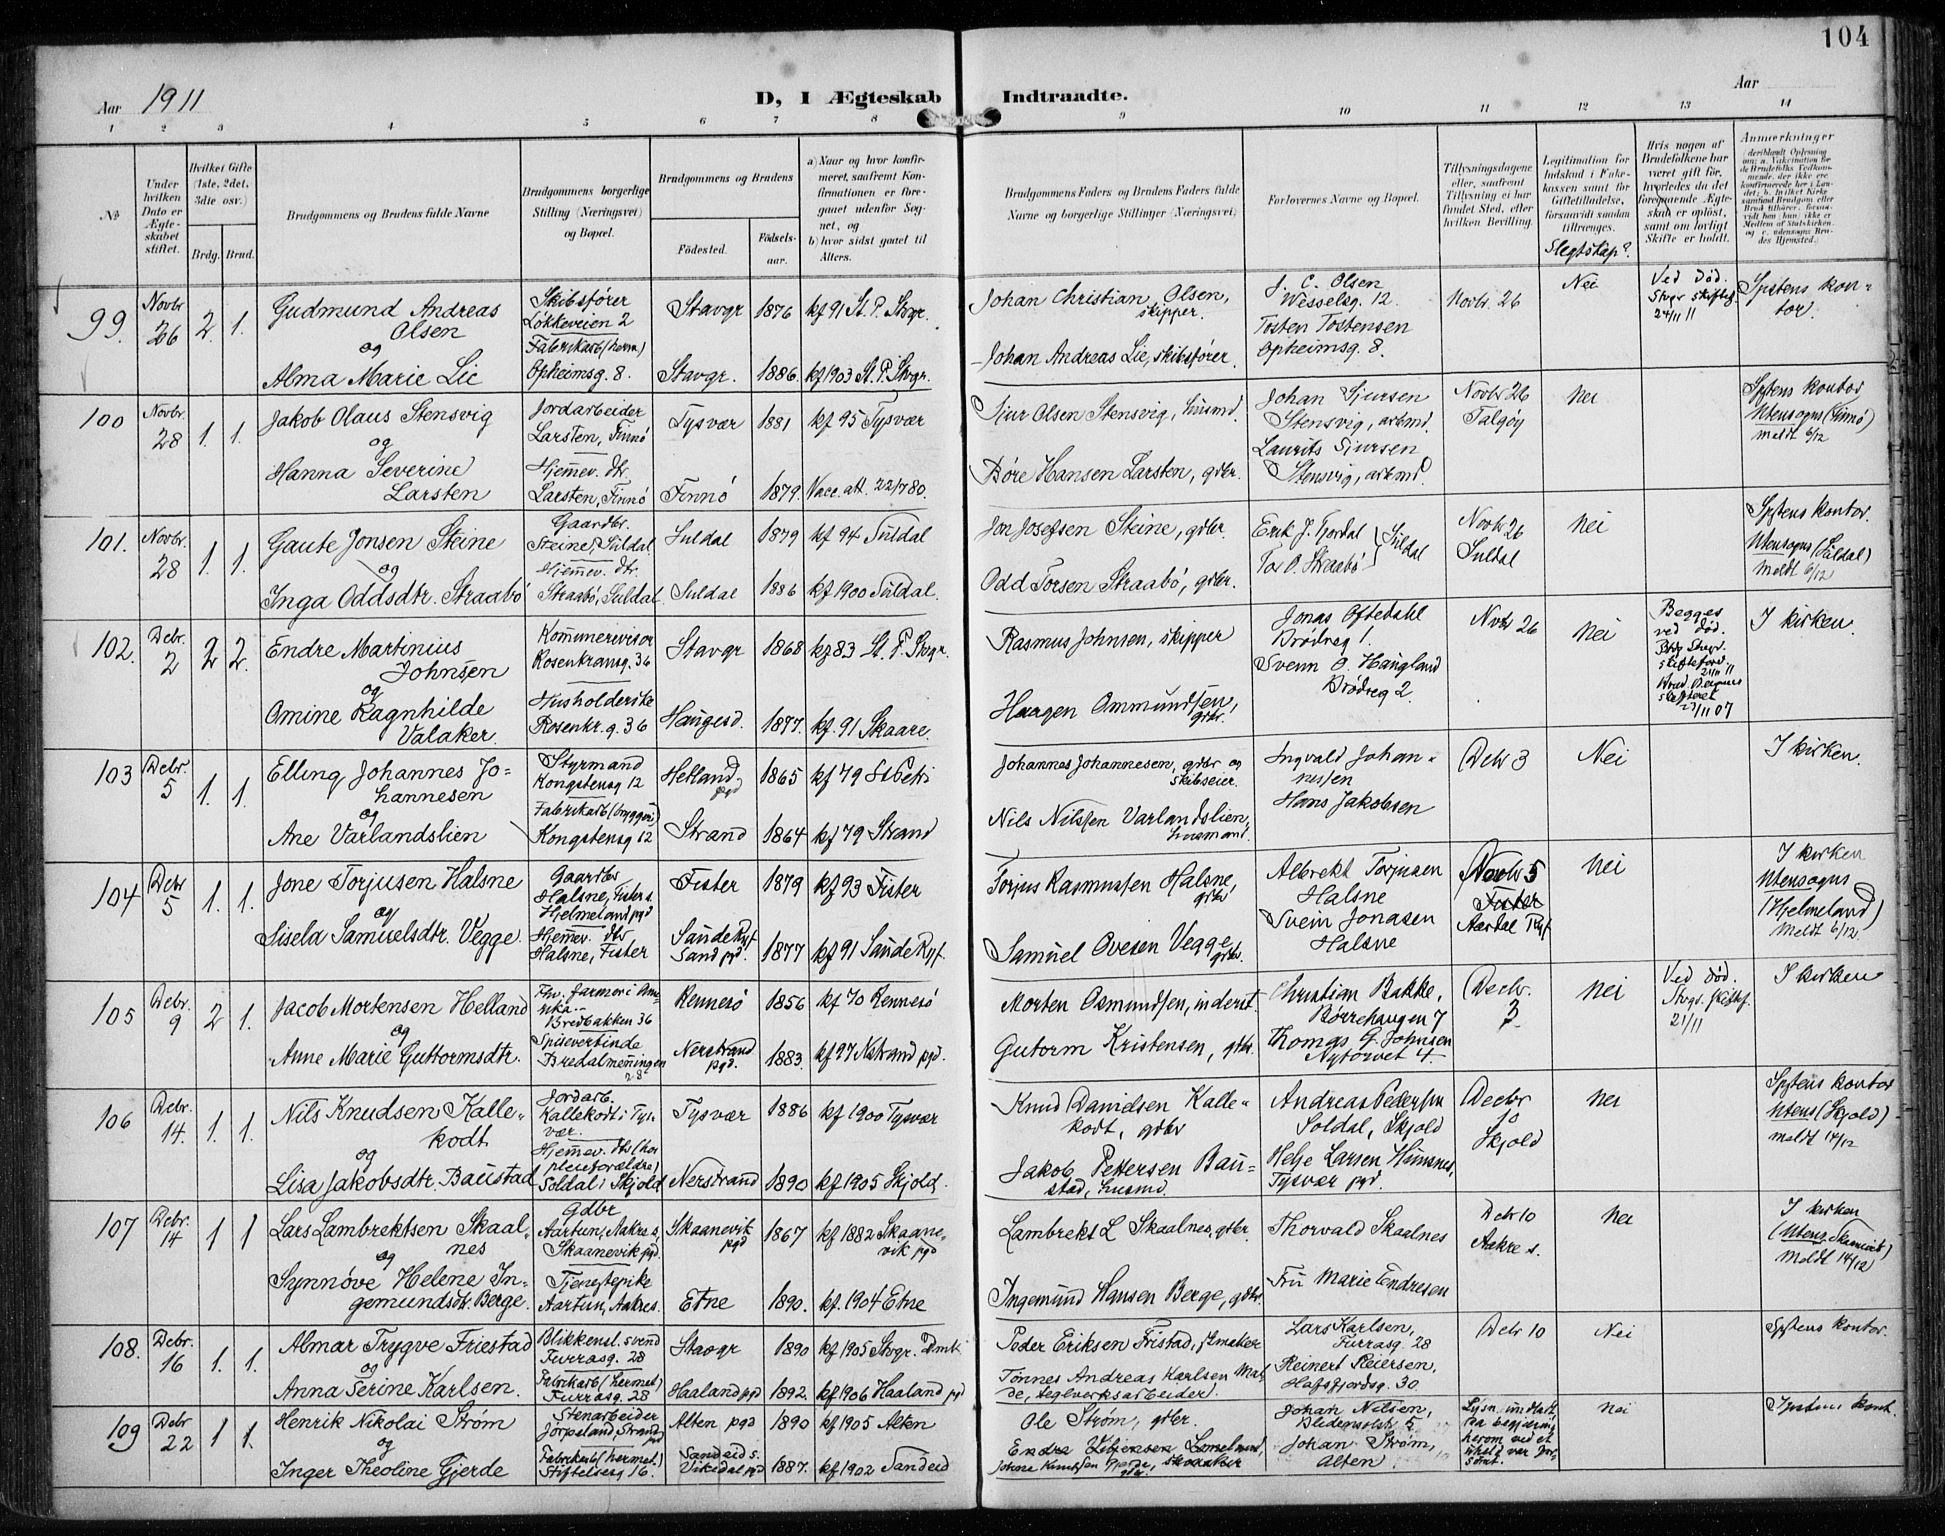 104
Aar 1911
D, I Ægteskab Indtraadte.
Aar
1 2 3 4 5 6 7 8 9 10 11 12 13 14
No
Under hvilken Dato er Ægteskabet stiftet.
Hvilket Gifte (1ste, 2det, 3die osv.)
Brdg. Brud.
Brudgommens og Brudens fulde Navne
Brudgommens borgerlige Stilling (Næringsvei) og Bopæl.
Brudgommens og Brudens
Fødested. Fødselsaar.
a) Naar og hvor konfirmeret, saafremt Konfirmationen er foregaaet udenfor Sognet, og
b) hvor sidst gaaet til Alters.
Brudgommens Faders og Brudens Faders fulde Navne og borgerlige Stillinger (Næringsvei)
Forlovernes Navne og Bopæl.
Tillysningsdagene eller, saafremt Tillysning ei har fundet Sted, efter hvilken Bevilling.
Legitimation for Indskud i Enkekassen samt for Giftetilladelse, forsaavidt saadan tiltrænges.
Slegtskap?
Hvis nogen af Brudefolkene har været gift før, hvorledes da det foregaaende Ægteskab er opløst, samt om lovligt Skifte er holdt.
Anmerkninger
99. Novbr 26 2. 1.
Gudmund Andreas Olsen
og
Alma Marie Lie
Skibsfører
Løkkeveien 2
Fabrikarb (herm)
Opheimsg. 8.
Stavgr 1876 kf 91 St. P. Stvgr.
Stavgr. 1886. kf 1903 St. P. Stvgr.
Johan Christian Olsen, skipper.
Johan Andreas Lie, skibsfører
J. C. Olsen
Wesselsg. 12.
Tosten Tostensen
Opheimsg. 8.
Novbr. 26
Nei
Ved død.
Stvgr skiftef.
24/11 11
Spstens kontor.
100 Novbr. 28 1. 1.
Jakob Olaus Stensvig
og
Hanna Severine Larsten
Jordarbeider
Larsten, Finnö
Hjemmev. dtr
Larsten, Finnö
Tysvær 1881 kf 95 Tysvær
Finnö 1879. Vacc. att. 22/7 80.
Sjur Olsen Stensvig, husmd.
Børe Hansen Larsten, gdbr.
Johan Sjursen
Stensvig, arbmd.
Laurits Sjursen
Stensvig, arbmd.
Novbr 26
Talgöy
Nei
Spstens kontor
Utensogns (Finnö)
meldt 6/12
101. Novbr. 28 1. 1.
Gaute Jonsen Steine
og
Inga Oddsdtr. Straabø
Gaardbr.
Steine, Suldal
Hjemmev. dtr.
Straabø, Suldal
Suldal 1879 kf 94 Suldal
Suldal 1886 kf 1900 Suldal.
Jon Josefsen Steine, gdbr.
Odd Torsen Straabö, gdbr.
Erik J. Fjordal
Tor O. Straabø } Suldal
Novbr 26
Suldal
Nei
Spstens kontor.
Utensogns (Suldal)
meldt 6/12
102. Debr. 2 2 2.
Endre Martinius Johnsen
og
Amine Ragnhilde Valaker.
Kommunerevisor
Rosenkransg. 36
Husholderske
Rosenkr. g. 36
Stavgr 1868 kf 83 St. P. Stvgr.
Haugesd. 1877. kf. 91 Skaare.
Rasmus Johnsen, skipper
Haagen Ommundsen, gdbr.
Jonas Oftedahl
Brödreg 1.
Svenn O. Haugland
Brödreg 2
Novbr 26
Nei
Begges
ved død.
Brdg Stvgr.
skifteford.
21/11 11
skifteret
23/11 07
I kirken.
103 Debr. 5 1. 1.
Elling Johannes Johannesen
og
Ane Varlandslien
Styrmand
Kongstensg 12
Fabrikarb (bryggeri)
Kongstensg 12
Hetland pgd 1865 kf 79 St Petri
Strand 1864 kf 79 Strand
Johannes Johannesen, gdbr og skibseier.
Nils Nilssen Varlandslien, husmand.
Ingvald Johannessen
Hans Jakobsen
Debr 3
Nei
I kirken.
104 Debr 5 1. 1.
Jone Torjusen Halsne
og
Sisela Samuelsdtr. Vegge.
Gaardbr
Halsne, Fister s.
Hjelmeland pgd
Hjemmev. dtr
Halsne, Fister
Fister 1879 kf 93 Fister
Saude Ryf. Sand pgd. 1877 kf 91 Saude Ryf.
Torjus Rasmussen Halsne, gdbr
Samuel Ovesen Vegge, gdbr.
Albrekt Torjusen
Halsne
Svein Jonasen
Halsne
Novbr 5
Fister
Aardal Ryf
Nei
I kirken
Utensogns
(Hjelmeland)
Meldt 6/12.
105 Debr. 9 2 1.
Jacob Mortensen Helland
og
Anne Marie Guttormsdtr.
Fhv. farmer i Amerika
Bredbakken 36
Spisevertinde
Bredalmenningen 28
Rennesö 1856 kf 70 Rennesö
Nerstrand pgd. 1883. kf 97 Nstrand pgd.
Morten Osmundsen, inderst
Gutorm Kristensen, gdbr.
Christian Bakke,
Börrehaugen 7
Thomas G. Johnsen
Nytorvet 4.
Decbr. 3
Nei
Ved død.
Stvgr. skiftef.
21/11
I kirken
106 Debr. 14. 1. 1.
Nils Knudsen Kallekodt
og
Lisa Jakobsdtr. Baustad
Jordarb.
Kallekodt i Tysvær.
Hjemmev. dtr (hos pleieforældre)
Soldal i Skjold
Tysvær 1886 kf 1900 Tysvær
Nerstrand 1890 kf 1905 Skjold.
Knud Danielsen Kallekodt, gdbr
Jakob Pettersen Baustad, husmd.
Andreas Pedersen
Soldal, Skjold
Helje Larsen Hamsnes,
Tysvær pgd.
Decbr 10
Skjold
Nei
Spstens kontor
Utens (Skjold)
meldt 14/12
107 Debr. 14 1 1
Lars Lambrektsen Skaalnes
og
Synnöve Helene Ingemundsdtr. Berge.
Gdbr
Aartun, Aakre s.
Skaanevik pgd.
Tjenestepike
Aartun, Aakre s.
Skaanevik pgd 1867 kf 1882 Skaanevik pgd
Etne 1890. kf. 1904 Etne
Lambrekt L Skaalnes, gdbr.
Ingemund Hansen Berge, gdbr.
Thorvald Skaalnes
Fru Marie Endresen
Debr 10
Aakre s.
Nei
I kirken
(Utens. Skaanevik)
Meldt 14/12
108. Debr. 16 1. 1.
Almar Trygve Friestad
og
Anna Serine Karlsen.
Blikkensl. svend
Furrasg. 28
Fabrikarb (hermet.)
Furrasg. 28
Stavgr 1890 kf 1905 Stvgr. Dmk
Haaland pgd 1892. kf 1906 Haaland pgd
Peder Eriksen Fristad,
Tönnes Andreas Karlsen Malde, teglverksarbeider.
Lars Karlsen,
Furrasg. 28
Reinert Reiersen,
Hafsfjordsg. 30
Debr 10
Nei
Spstens kontor.
109 Debr 22 1 1.
Henrik Nikolai Strøm
og
Inger Theoline Gjerde
Stenarbeider
Jörpeland, Strand pgd
Fabrikarb (hermet.)
Stiftelsesg 16.
Alten pgd 1890 kf 1905 Alten
Sandeid s. Vikedal pgd 1887. kf 1902 Sandeid
Ole Strøm, gdbr.
Johan Nilsen,
Johan Strøm,
Alten
Nei
Spstens kont.